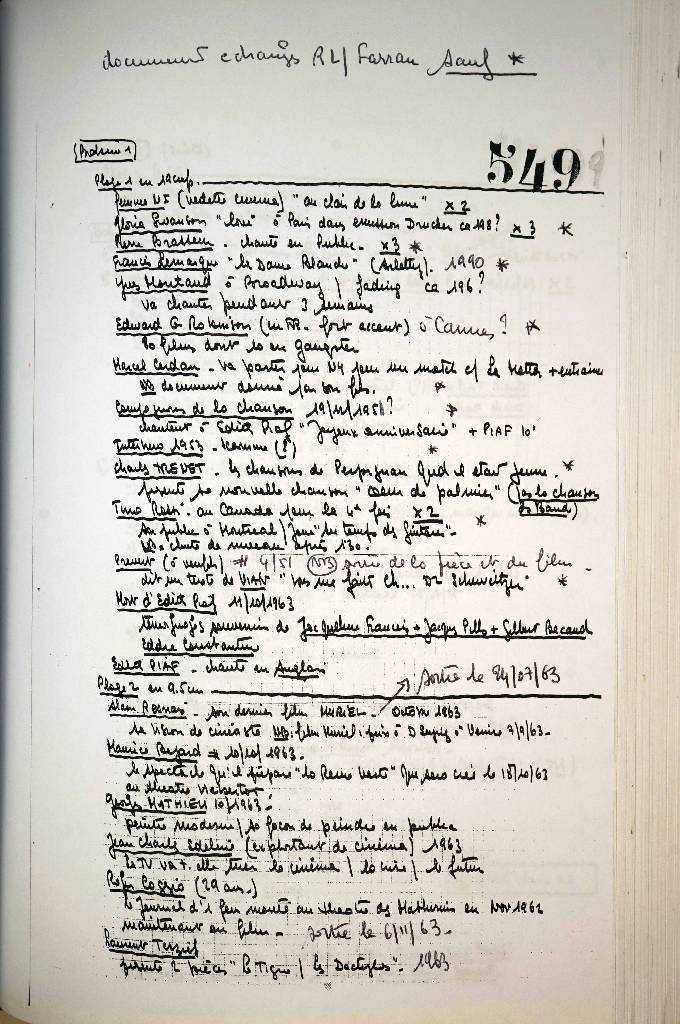 document echangés RL/Farran sauf *
549
Plage 1 en 19cm
femme US (vedette cinema) "au clair de la lune" x 2
Gloria Swanson "love" à Paris dans emission Drucker ca 198? x 3 *
Pierre Brasseur - chante en Public - x3 *
Francis Lemarque "la Dame Blanche" (Arletty). 1990 *
Yves Montand à Broadway / fading ca 196?
va chanter pendant 3 semaines
Edward G Robinson (en FR - fort accent) à Cannes? *
80 films dont 10 en gangster
Marcel Cerdan - va partir pour NY pour un match c/ La Motta + entraine
NB document donné par son fils. *
Compagnons de la chanson 19/11/1951? *
chantent à Edith Piaf "Joyeux anniversaire" + PIAF 10'
1953 - *
Charles TRENET - les chansons de Perpignan Qud il etait jeune. *
presente sa nouvelle chanson "coeur de palmier" (pas la chanson
Tino Rossi - au Canada pour la 4e fois x 2 *
son public à Montreal / Joue "le temps des guitares" -
NB = chute de niveau après 1'30.
Prevert # 4/51 NB sortie de la pièce et du film -
dit un texte de VIAN "vas me faire ch... Dr Schweitzer" *
Mort d'Edith Piaf 11/10/1963
temoignages souvenirs de Jacqueline François + Jacques Pills + Gilbert Becaud
Eddie Constantine
Edith PIAF - chante en Anglais
sortie le 24/07/63
Plage 2 en 9.5cm
Alain Resnais - son dernier film MURIEL - Octobre 1963
sa vision de cinéaste NB: film Muriel: à Venise 7/9/63 -
Maurice Bejard # 10/10/1963 -
le spectacle qu'il prepare "la Reine Verte" Qui sera créé le 18/10/63
au theatre Hebertot
Georges MATHIEU 10/1963 -
peintre moderne / sa façon de peindre en public
Jean Charles Edeline (exploitant de cinema) 1963
la TV va t elle tuer le cinéma / la crise / le futur
Roger Coggio (29 ans.)
le Journal d'1 fou monté au theatre des Mathurins en Nov 1962
maintenant en film - sortie le 6/11/63 -
Laurent Terzieff
presente 2 pièces "le Tigre / les Dactylos" - 1963